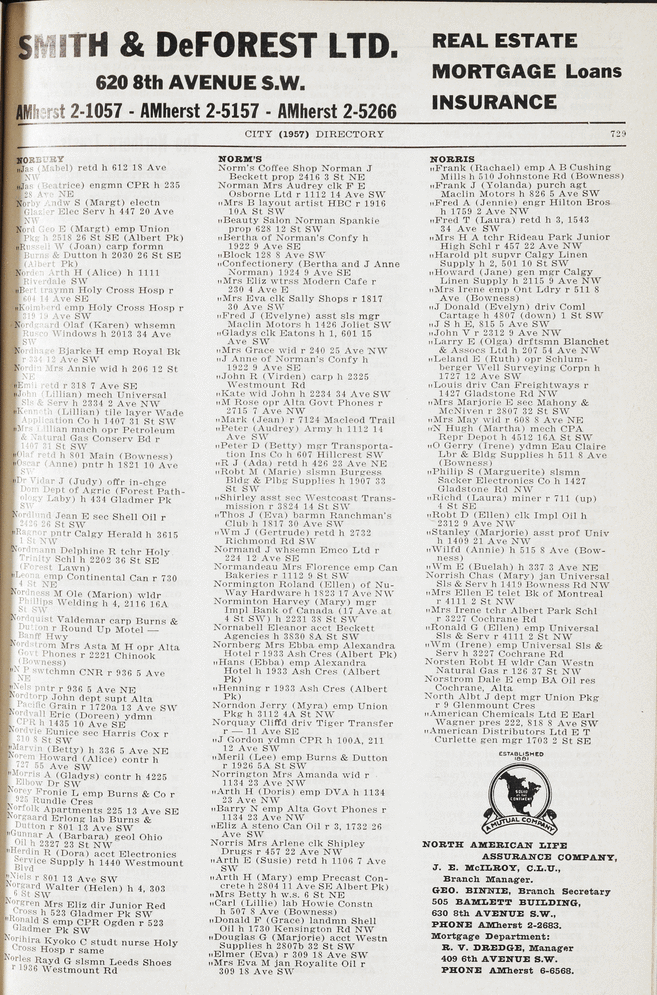 SMITH & DeFOREST LTD.
620 8th AVENUE S.W.
AMherst 2-1057 - AMherst 2-5157 - AMherst 2-5266
REAL ESTATE
MORTGAGE Loans
INSURANCE
CITY (1957) DIRECTORY
729
NORBURY
"Jas (Mabel) retd h 612 18 Ave
NW
"Jas (Beatrice) engmn CPR h 235
28 Ave NE
Norby Andw S (Margt) electn
Glazier Elec Serv h 447 20 Ave
NW
Nord Geo E (Margt) emp Union
Pkg h 2518 26 St SE (Albert Pk)
"Russell W (Joan) carp formn
Burns & Dutton h 2030 26 St SE
(Albert Pk)
Norden Arth H (Alice) h 1111
Riverdale SW
"Bert traymn Holy Cross Hosp r
604 14 Ave SE
"Koimberd emp Holy Cross Hosp r
319 19 Ave SW
Nordgaard Olaf (Karen) whsemn
Rusco Windows h 2013 34 Ave
SW
Nordhage Bjarke H emp Royal Bk
r 334 12 Ave SW
Nordin Mrs Annie wid h 206 12 St
NE
"Emil retd r 318 7 Ave SE
"John (Lillian) mech Universal
Sls & Serv h 2334 2 Ave NW
"Kenneth (Lillian) tile layer Wade
Application Co h 1407 31 St SW
"Mrs Lillian mach opr Petroleum
& Natural Gas Conserv Bd r
1407 31 St SW
"Olaf retd h 801 Main (Bowness)
"Oscar (Anne) pntr h 1821 10 Ave
SW
"Dr Vidar J (Judy) offr in-chge
Dom Dept of Agric (Forest Path-
ology Laby) h 434 Gladmer Pk
SW
Nordlund Jean E sec Shell Oil r
2426 26 St SW
"Ragnor pntr Calgy Herald h 3615
1 St NW
Nordmann Delphine R tchr Holy
Trinity Schl h 2202 36 St SE
(Forest Lawn)
"Leona emp Continental Can r 730
4 St NE
Nordness M Ole (Marion) wldr
Phillips Welding h 4, 2116 16A
St SW
Nordquist Valdemar carp Burns &
Dutton r Round Up Motel —
Banff Hwy
Nordstrom Mrs Asta M H opr Alta
Govt Phones r 2221 Chinook
(Bowness)
"N P swtchmn CNR r 936 5 Ave
NE
"Nels pntr r 936 5 Ave NE
Nordtorp John dept supt Alta
Pacific Grain r 1720a 13 Ave SW
Nordvall Eric (Doreen) ydmn
CPR h 1435 10 Ave SE
Nordvie Eunice sec Harris Cox r
310 8 St SW
"Marvin (Betty) h 336 5 Ave NE
Norem Howard (Alice) contr h
727 55 Ave SW
"Morris A (Gladys) contr h 4225
Elbow Dr SW
Norey Fronie L emp Burns & Co r
925 Rundle Cres
Norfolk Apartments 225 13 Ave SE
Norgaard Erlong lab Burns &
Dutton r 801 13 Ave SW
"Gunnar A (Barbara) geol Ohio
Oil h 2327 23 St NW
"Herdin R (Dora) acct Electronics
Service Supply h 1440 Westmount
Blvd
"Niels r 801 13 Ave SW
Norgard Walter (Helen) h 4, 303
6 St SW
Norgren Mrs Eliz dir Junior Red
Cross h 523 Gladmer Pk SW
"Ronald S emp CPR Ogden r 523
Gladmer Pk SW
Norihira Kyoko C studt nurse Holy
Cross Hosp r same
Norles Rayd G slsmn Leeds Shoes
r 1936 Westmount Rd
NORM'S
Norm's Coffee Shop Norman J
Beckett prop 2416 3 St NE
Norman Mrs Audrey clk F E
Osborne Ltd r 1112 14 Ave SW
"Mrs B layout artist HBC r 1916
10A St SW
"Beauty Salon Norman Spankie
prop 628 12 St SW
"Bertha of Norman's Confy h
1922 9 Ave SE
"Block 128 8 Ave SW
"Confectionery (Bertha and J Anne
Norman) 1924 9 Ave SE
"Mrs Eliz wtrss Modern Cafe r
230 4 Ave E
"Mrs Eva clk Sally Shops r 1817
30 Ave SW
"Fred J (Evelyne) asst sls mgr
Maclin Motors h 1426 Joliet SW
"Gladys clk Eatons h 1, 601 15
Ave SW
"Mrs Grace wid r 240 25 Ave NW
"J Anne of Norman's Confy h
1922 9 Ave SE
"John R (Virden) carp h 2325
Westmount Rd
"Kate wid John h 2234 34 Ave SW
"M Rose opr Alta Govt Phones r
2715 7 Ave NW
"Mark (Jean) r 7124 Macleod Trail
"Peter (Audrey) Army h 1112 14
Ave SW
"Peter D (Betty) mgr Transporta-
tion Ins Co h 607 Hillcrest SW
"R J (Ada) retd h 426 23 Ave NE
"Robt M (Marie) slsmn Burgess
Bldg & Plbg Supplies h 1907 33
St SW
"Shirley asst sec Westcoast Trans-
mission r 3824 14 St SW
"Thos J (Eva) barmn Ranchman's
Club h 1817 30 Ave SW
"Wm J (Gertrude) retd h 2732
Richmond Rd SW
Normand J whsemn Emco Ltd r
224 12 Ave SE
Normandeau Mrs Florence emp Can
Bakeries r 1112 9 St SW
Normington Roland (Ellen) of Nu-
Way Hardware h 1823 17 Ave NW
Norminton Harvey (Mary) mgr
Impl Bank of Canada (17 Ave at
4 St SW) h 2231 38 St SW
Nornabell Eleanor acct Beckett
Agencies h 3830 8A St SW
Nornberg Mrs Ebba emp Alexandra
Hotel r 1933 Ash Cres (Albert Pk)
"Hans (Ebba) emp Alexandra
Hotel h 1933 Ash Cres (Albert
Pk)
"Henning r 1933 Ash Cres (Albert
Pk)
Norndon Jerry (Myra) emp Union
Pkg h 3112 4A St NW
Norquay Cliffd driv Tiger Transfer
r — 11 Ave SE
"J Gordon ydmn CPR h 100A, 211
12 Ave SW
"Meril (Lee) emp Burns & Dutton
r 1926 5A St SW
Norrington Mrs Amanda wid r
1134 23 Ave NW
"Arth H (Doris) emp DVA h 1134
23 Ave NW
"Barry N emp Alta Govt Phones r
1134 23 Ave NW
"Eliz A steno Can Oil r 3, 1732 26
Ave SW
Norris Mrs Arlene clk Shipley
Drugs r 457 22 Ave NW
"Arth E (Susie) retd h 1106 7 Ave
SW
"Arth H (Mary) emp Precast Con-
crete h 2804 11 Ave SE Albert Pk)
"Mrs Betty h w.s. 6 St NE
"Carl (Lillie) lab Howie Constn
h 507 8 Ave (Bowness)
"Donald F (Grace) landmn Shell
Oil h 1730 Kensington Rd NW
"Douglas G (Marjorie) acct Westn
Supplies h 2807b 32 St SW
"Elmer (Eva) r 309 18 Ave SW
"Mrs Eva M jan Royalite Oil r
309 18 Ave SW
NORRIS
"Frank (Rachael) emp A B Cushing
Mills h 510 Johnstone Rd (Bowness)
"Frank J (Yolanda) purch agt
Maclin Motors h 826 5 Ave SW
"Fred A (Jennie) engr Hilton Bros
h 1759 2 Ave NW
"Fred T (Laura) retd h 3, 1543
34 Ave SW
"Mrs H A tchr Rideau Park Junior
High Schl r 457 22 Ave NW
"Harold plt supvr Calgy Linen
Supply h 2, 501 10 St SW
"Howard (Jane) gen mgr Calgy
Linen Supply h 2115 9 Ave NW
"Mrs Irene emp Ont Ldry r 511 8
Ave (Bowness)
"J Donald (Evelyn) driv Coml
Cartage h 4807 (down) 1 St SW
"J S h E, 815 5 Ave SW
"John V r 2312 9 Ave NW
"Larry E (Olga) drftsmn Blanchet
& Assocs Ltd h 207 54 Ave NW
"Leland E (Ruth) opr Schlum-
berger Well Surveying Corpn h
1727 12 Ave SW
"Louis driv Can Freightways r
1427 Gladstone Rd NW
"Mrs Marjorie E sec Mahony &
McNiven r 2807 32 St SW
"Mrs May wid r 608 8 Ave NE
"N Hugh (Martha) mech CPA
Repr Depot h 4512 16A St SW
"O Gerry (Irene) ydmn Eau Claire
Lbr & Bldg Supplies h 511 8 Ave
(Bowness)
"Philip S (Marguerite) slsmn
Sacker Electronics Co h 1427
Gladstone Rd NW
"Richd (Laura) miner r 711 (up)
4 St SE
"Robt D (Ellen) clk Impl Oil h
2312 9 Ave NW
"Stanley (Marjorie) asst prof Univ
h 1409 21 Ave NW
"Wilfd (Annie) h 515 8 Ave (Bow-
ness)
"Wm E (Buelah) h 337 3 Ave NE
Norrish Chas (Mary) jan Universal
Sls & Serv h 1419 Bowness Rd NW
"Mrs Ellen E telet Bk of Montreal
r 4111 2 St NW
"Mrs Irene tchr Albert Park Schl
r 3227 Cochrane Rd
"Ronald G (Ellen) emp Universal
Sls & Serv r 4111 2 St NW
"Wm (Irene) emp Universal Sls &
Serv h 3227 Cochrane Rd
Norsten Robt H wldr Can Westn
Natural Gas r 126 37 St NW
Norstrom Dale E emp BA Oil res
Cochrane, Alta
North Albt J dept mgr Union Pkg
r 9 Glenmount Cres
"American Chemicals Ltd E Earl
Wagner pres 222, 818 8 Ave SW
"American Distributors Ltd E T
Curlette gen mgr 1703 2 St SE
ESTABLISHED
1881
SOLID
AS THE
CONTINENT
A MUTUAL COMPANY
NORTH AMERICAN LIFE
ASSURANCE COMPANY,
J. E. McILROY, C.L.U.,
Branch Manager.
GEO. BINNIE, Branch Secretary
505 BAMLETT BUILDING,
630 8th AVENUE S.W.,
PHONE AMherst 2-2683.
Mortgage Department:
R. V. DREDGE, Manager
409 6th AVENUE S.W.
PHONE AMherst 6-6568.